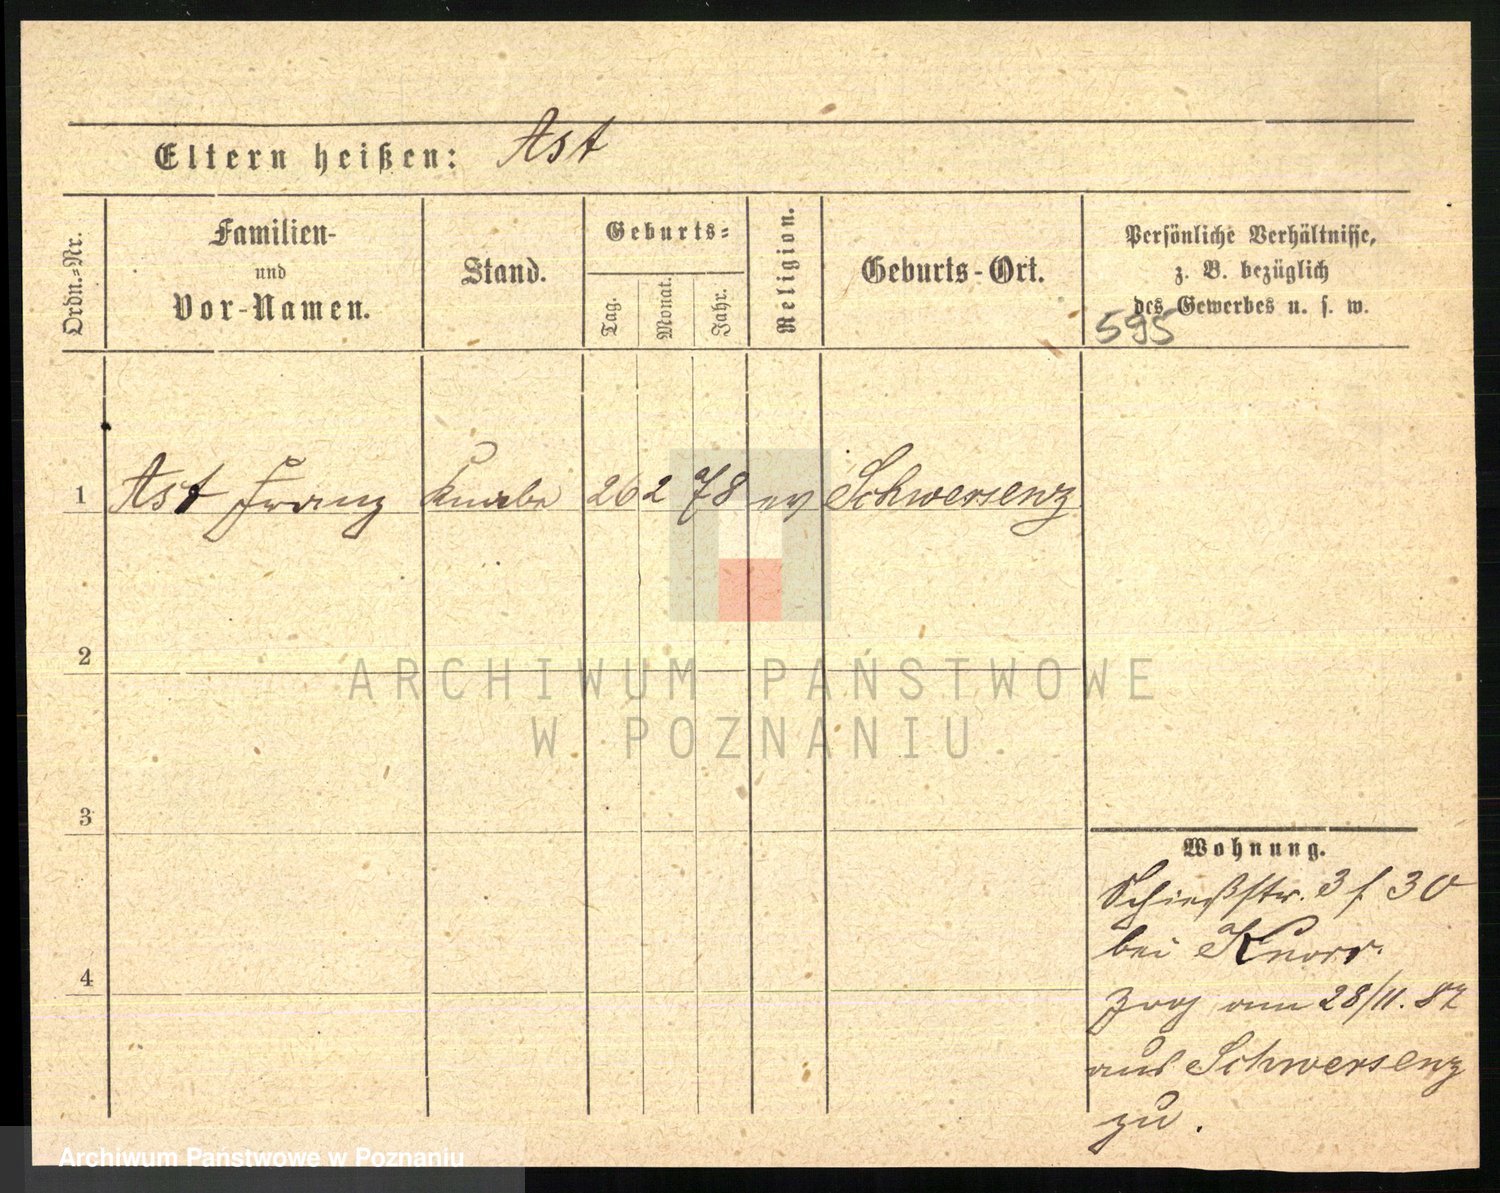 Eltern heißen: Ast
Ordn.-Nr.
Familien-
und
Vor-Namen.
Stand.
Geburts-
Tag.
Monat.
Jahr.
Religion.
Geburts-Ort.
Persönliche Verhältnisse,
z. B. bezüglich
des Gewerbes u. s. w.
595
1 Ast Franz Knabe 26 2 78 ev Schwersenz
2
3
4
Wohnung.
Schießstr. 3 f 30
bei Knorr.
zog am 28/11. 87
aus Schwersenz
zu.
ARCHIWUM PAŃSTWOWE
W POZNANIU
Archiwum Państwowe w Poznaniu